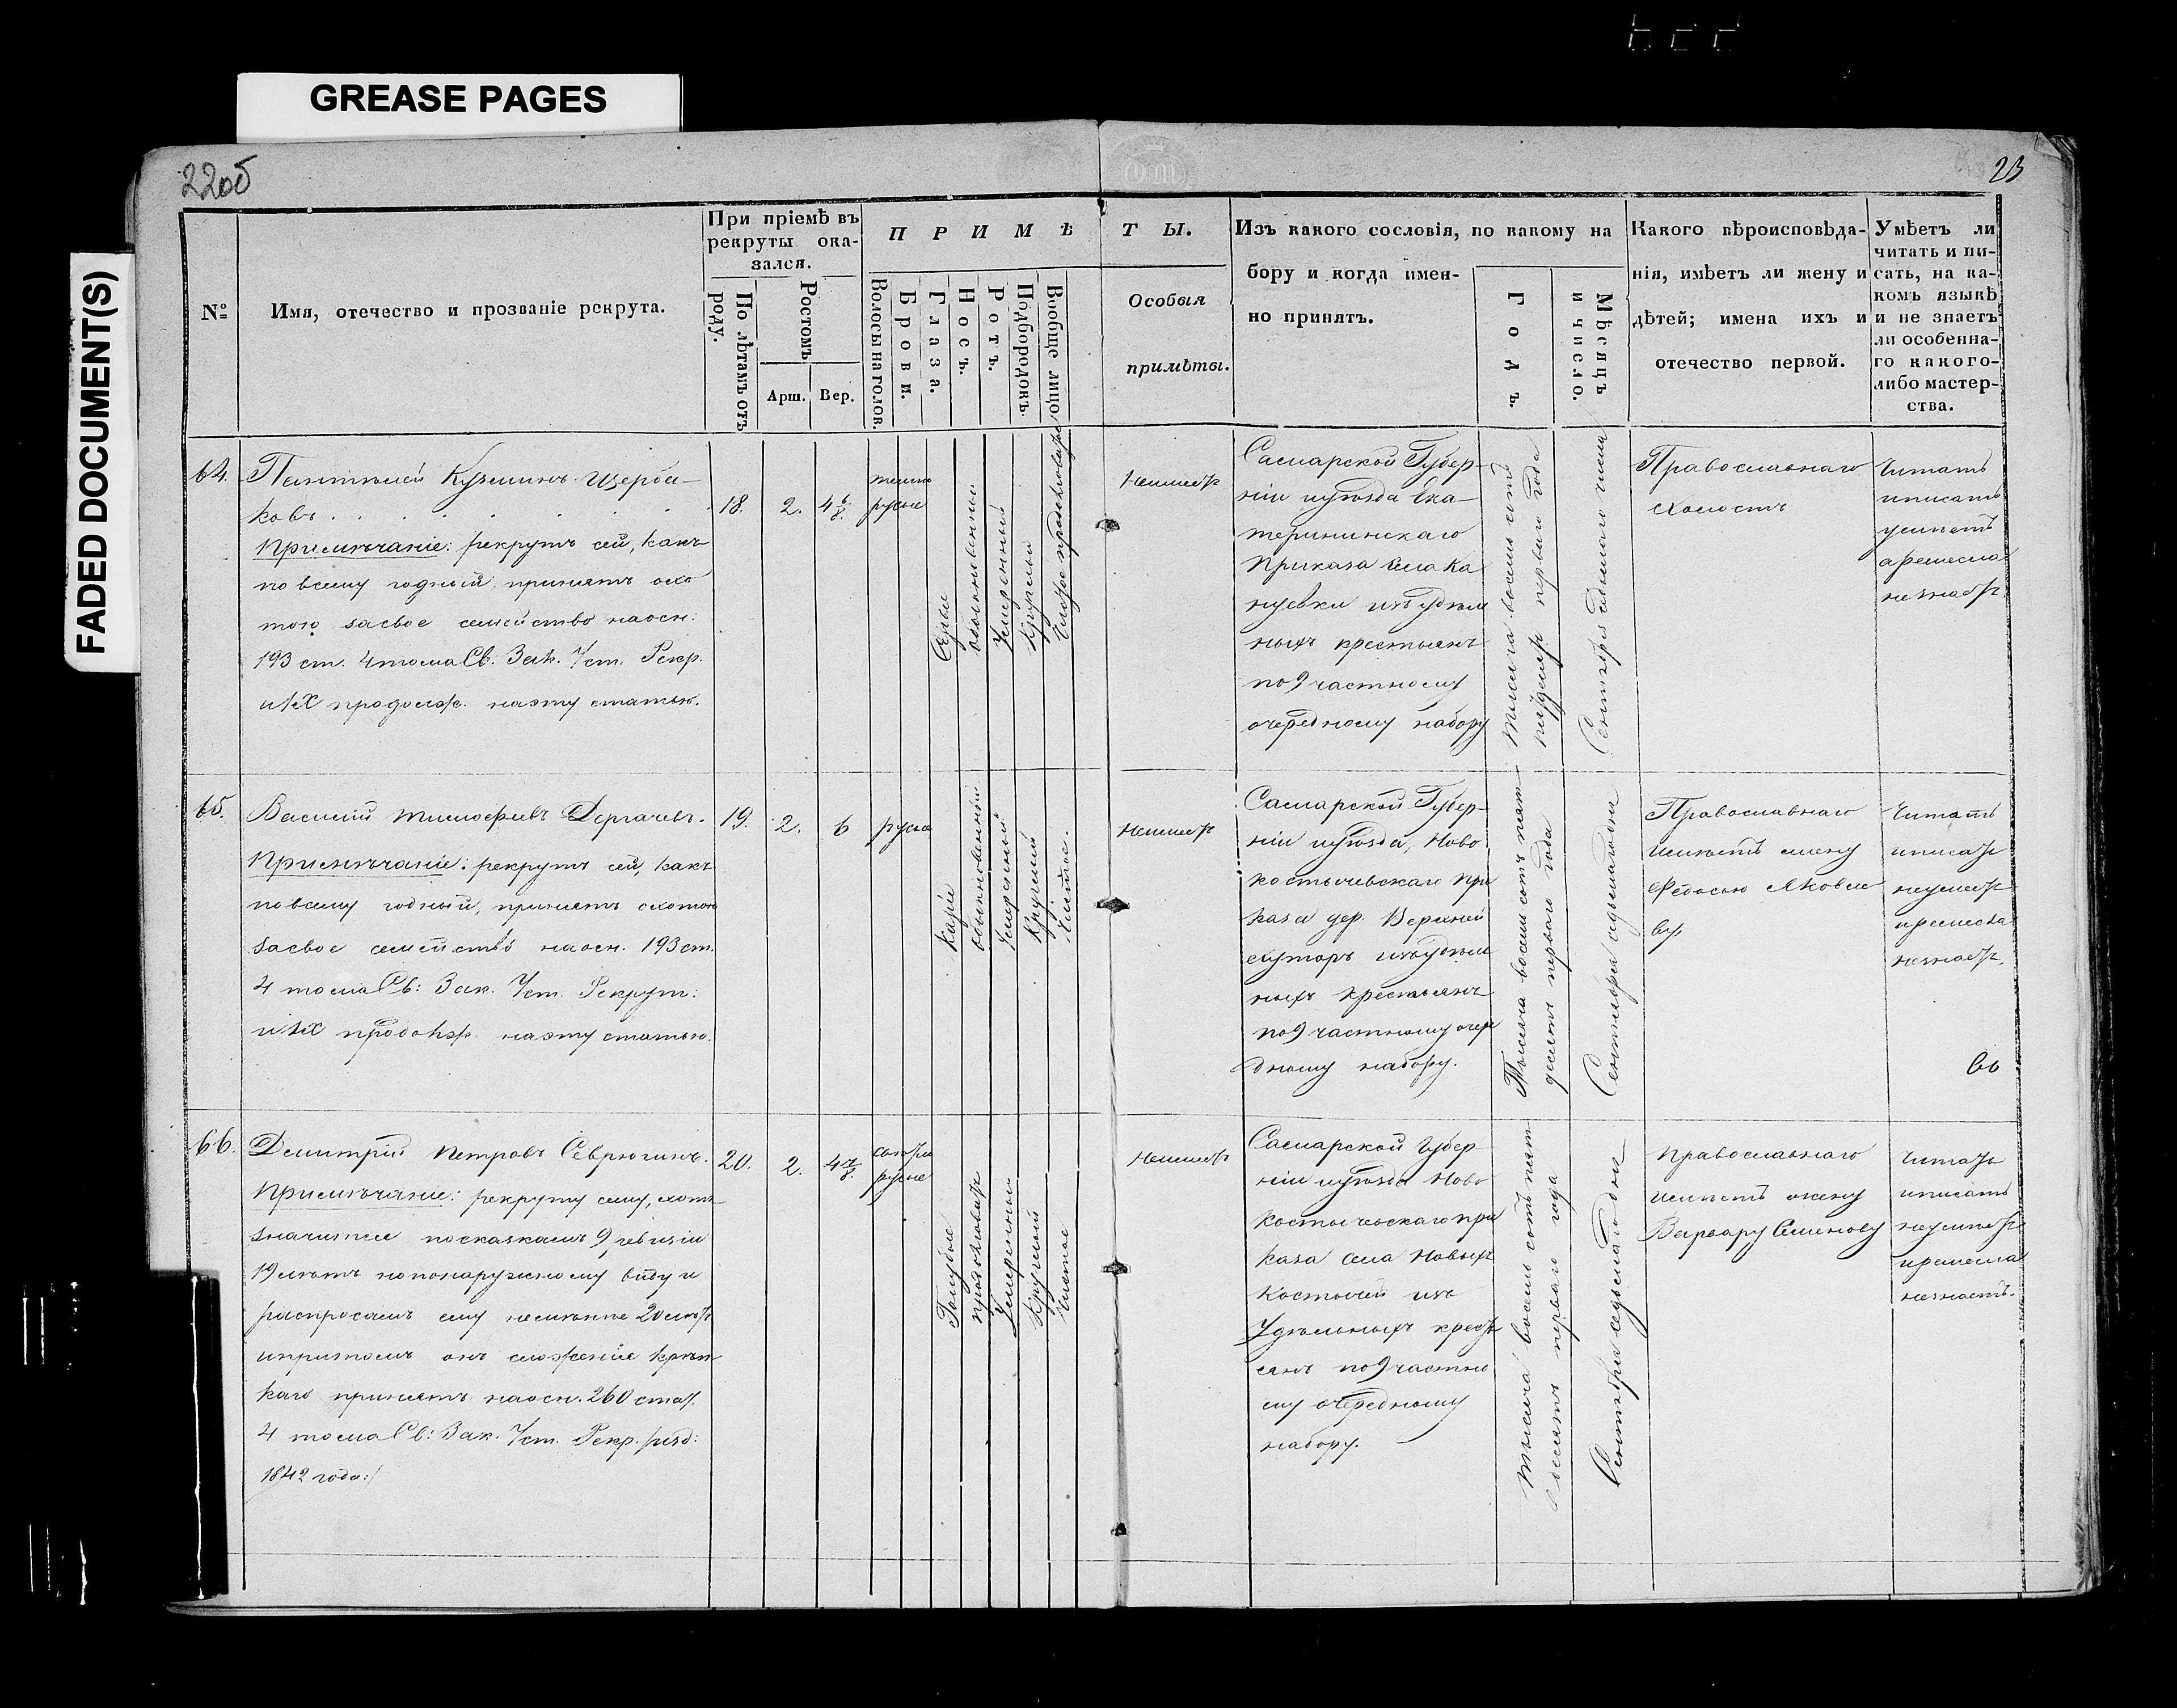 GREASE PAGES
FADED DOCUMENT(S)
22об
23
№
Имя, отечество и прозваніе рекрута.
При пріемѣ въ
рекруты ока-
зался.
По лѣтамъ отъ
роду.
Ростомъ
Арш.
Вер.
ПРИМѢТЫ.
Волосы на голов.
Брови.
Глаза.
Носъ.
Ротъ.
Подбородокъ.
Вообще лицо
Особыя
примѣты.
Изъ какого сословія, по какому на
бору и когда имен-
но принятъ.
Годъ.
Мѣсяцъ
и число.
Какого вѣроисповѣда-
нія, имѣетъ ли жену и
дѣтей; имена ихъ и
отечество первой.
Умѣетъ ли
читать и пи-
сать, на ка-
комъ языкѣ
и не знаетъ
ли особенна-
го какого-
либо мастер-
ства.
64.
Пантелей Кузминъ Щерба-
ковъ
Примѣчаніе: рекрутъ сей, какъ
по всему годный, принятъ охо
тою за свое семейство на осн:
193 ст. 4 тома Св: Зак. Уст. Рекр.
и IX продолж. на эту статью.
18.
2.
4 6/8.
темно
русые
Серые
обыкновенный
Умеренный
Круглый
Чистое продолговатое
Неимеетъ
Самарской Губер-
ніи и уѣзда Ека-
терининскаго
Приказа села Ка
нуевки изъ удѣль
ныхъ крестьянъ
по 9 частному
очередному набору
Тысяча восемь сотъ
пятдесятъ перваго года
Сентября седьмаго числа
Православнаго
холостъ
Читать
и писать
умѣетъ
а ремесла
незнаетъ
65.
Василій Тимофеевъ Дергачевъ.
Примѣчаніе: рекрутъ сей, какъ
по всему годный, принятъ охотою
за свое семейство на осн. 193 ст.
4 тома Св: Зак. Уст. Рекрут:
и IX продолж. на эту статью.
19.
2.
6
русые
Каріе
обыкновенный
Умеренный
Круглый
Чистое.
Неимеетъ
Самарской Губер-
ніи и уѣзда, Ново
костычевскаго при
каза дер. Верхней
хуторъ изъ удѣль
ныхъ крестьянъ
по 9 частному очере
дному набору.
Тысяча восемь сотъ пять
десятъ перваго года
Сентября седьмаго дня
Православнаго
имѣетъ жену
Федосью Яковле
ву
Читать
и писать
неумеетъ
и ремесла
незнаетъ.
66.
Дмитрій Петровъ Севрюгинъ.
Примѣчаніе: рекруту сему, хотя
значится по сказкамъ 9 ревизіи
19 лѣтъ но по наружному виду и
распросамъ ему неменѣе 20 лѣтъ
и притомъ онъ сложенія крѣп
каго принятъ на осн. 260 стат.
4 тома Св: Зак. Уст. Рекр. /изд:
1842 года:/
20.
2.
4 7/8.
светло
русые
Голубые
продолговатъ
Умеренный
Круглый
Чистое
Неимеетъ
Самарской Губер
ніи и уѣзда Ново
костычевскаго при
каза села Новыхъ
Костычей изъ
Удѣльныхъ кресть
янъ по 9 частно
му очередному
набору.
Тысяча восемь сотъ пять
десятъ перваго года
Сентября седьмаго дня
Православнаго
имѣетъ жену
Варвару Семенову
Читать
и писать
неумѣетъ
и ремесла
незнаетъ.